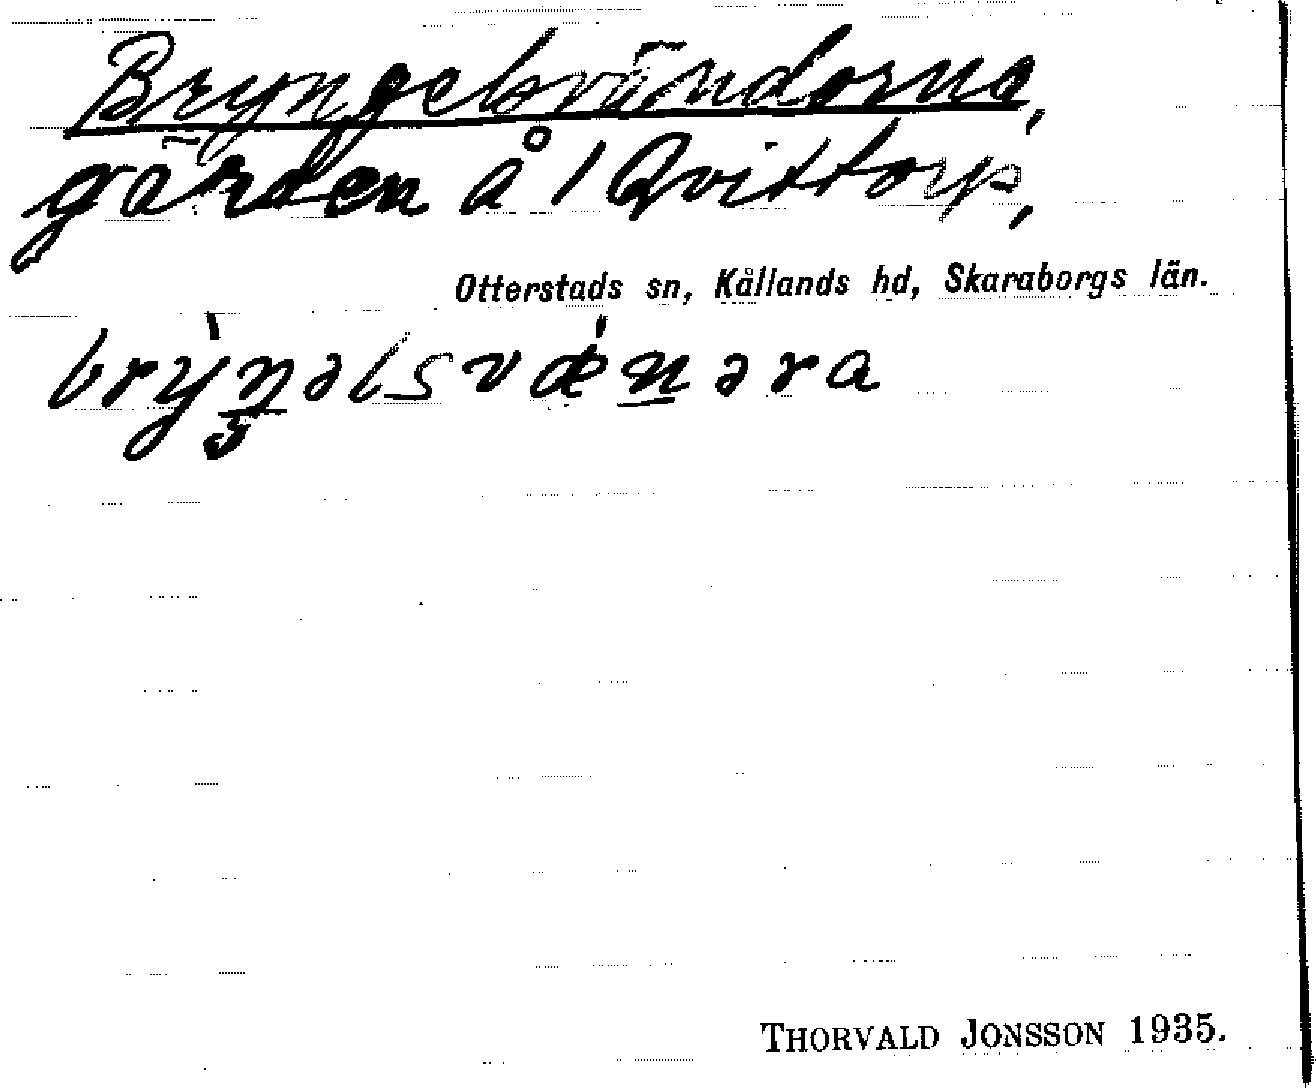 Bryngelsvändorna,
gärden å 1 Qvittorp,
Otterstads sn, Kållands hd, Skaraborgs län.
brỳŋəlsvǽnəra
THORVALD JONSSON 1935.